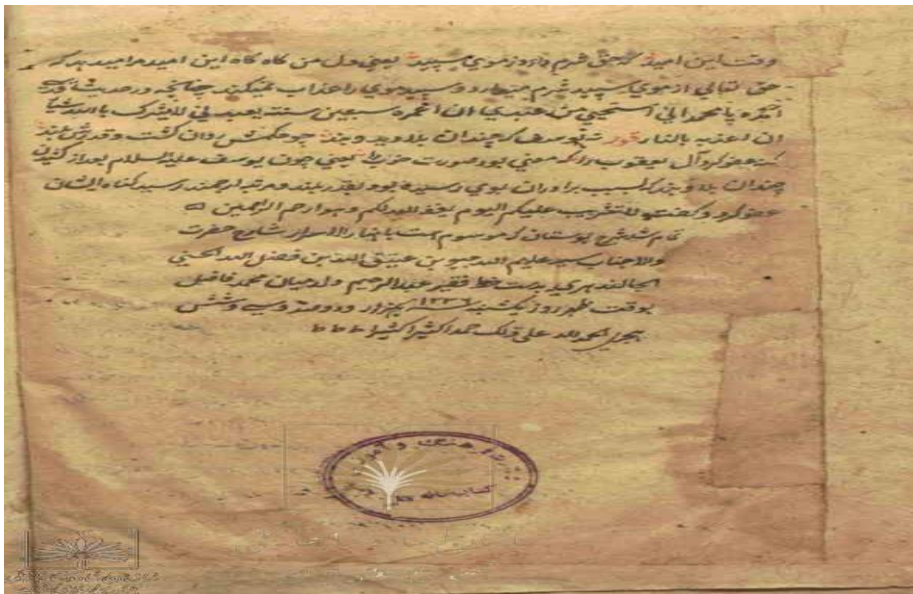 وقت این امید که حق شرم دارد ز موی سپید یعنی دل من کاه کاه این امید میدهد که
حق تعالی از موی سپید شرم میدارد و سپید موی را عذاب نمیکند چنانچه در حدیث
آمده یا محمد انی استحیی من عبدی ان اعمره سبعین سنته یعبدنی لا یشرک بالله شیأ
ان اعذبه بالنار قوله یوسف که چندان بلا دید و بند چو حکمش روان کشت و قدرش بلند
کنه عفو کرد آل یعقوب را که معنی بود صورت خوب را یعنی چون یوسف علیه السلام بعد از کشیدن
چندان بلا و بند که بسبب برادران بوی رسیده بود بقدر بلند و مرتبه ارجمند رسید کناه ایشان
عفو کرد و کفت لا تثریب علیکم الیوم یغفر الله لکم و هو ارحم الراحمین
تمام شد شرح بوستان که موسوم است باظهار الاسرار شارح حضرت
والاجناب سید علیم الله جیو بن عتیق الله بن فضل الله الحسنی
الجالندهری بدست خط فقیر عبدالرحیم ولد میان محمد فاضل
بوقت ظهر روز یکشنبه سنه ۱۲۳۶ یکهزار و دو صد و سی و شش
هجری الحمد لله علی ذلک حمدا کثیرا کثیرا
فرهنگ و امور
کتابخانه